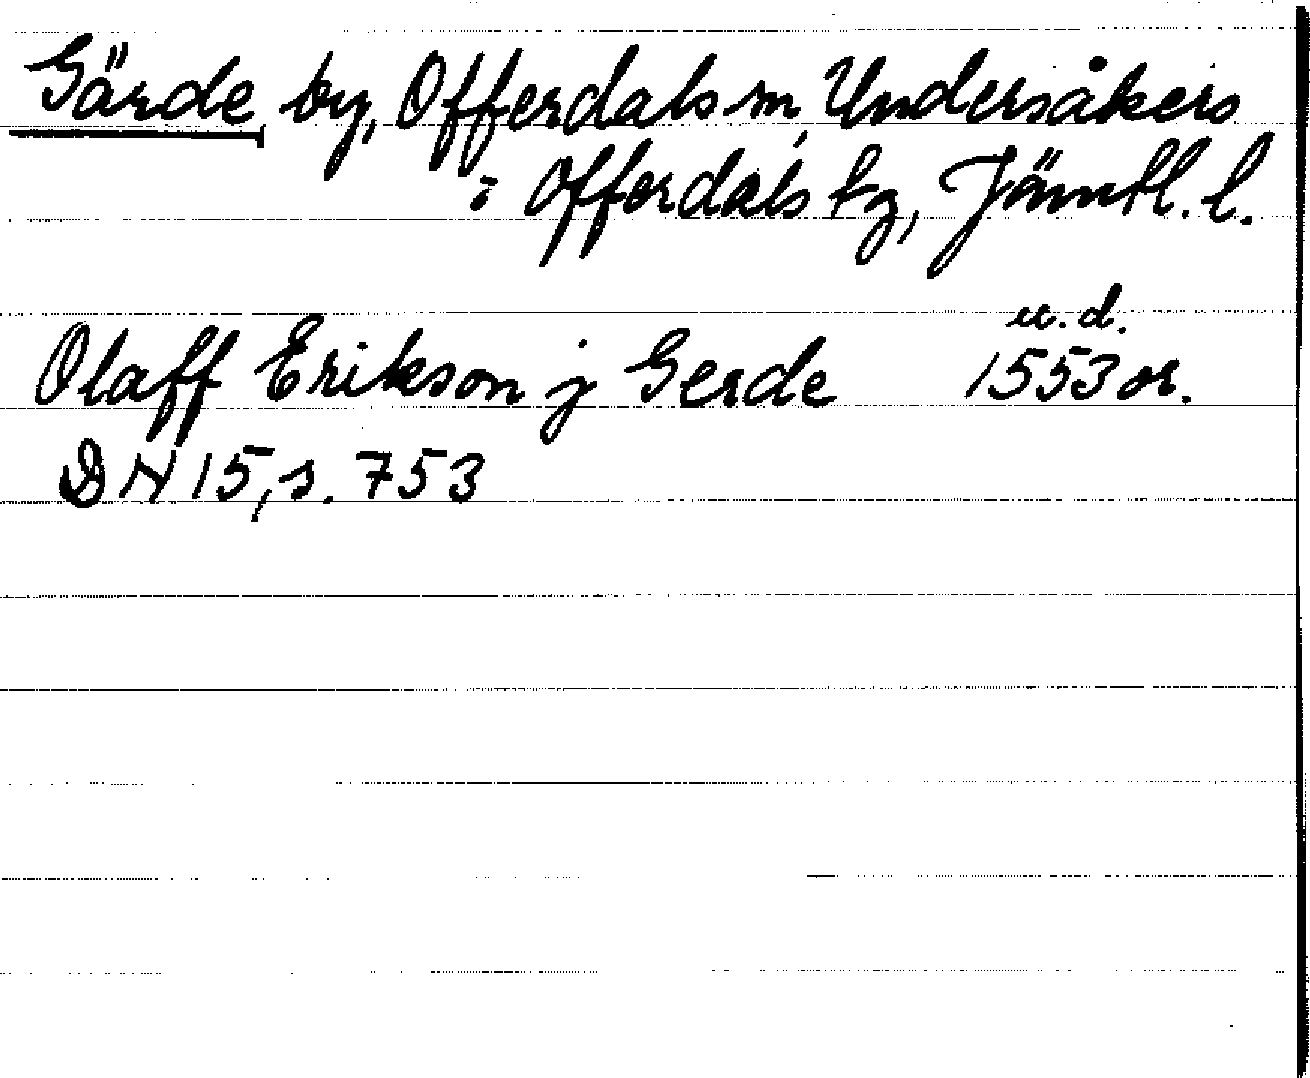 Gärde by, Offerdals sn, Undersåkers
i Offerdals tg, Jämtl. l.
u. d.
Olaff Erikson j Gerde 1553 or.
DN 15, s. 753